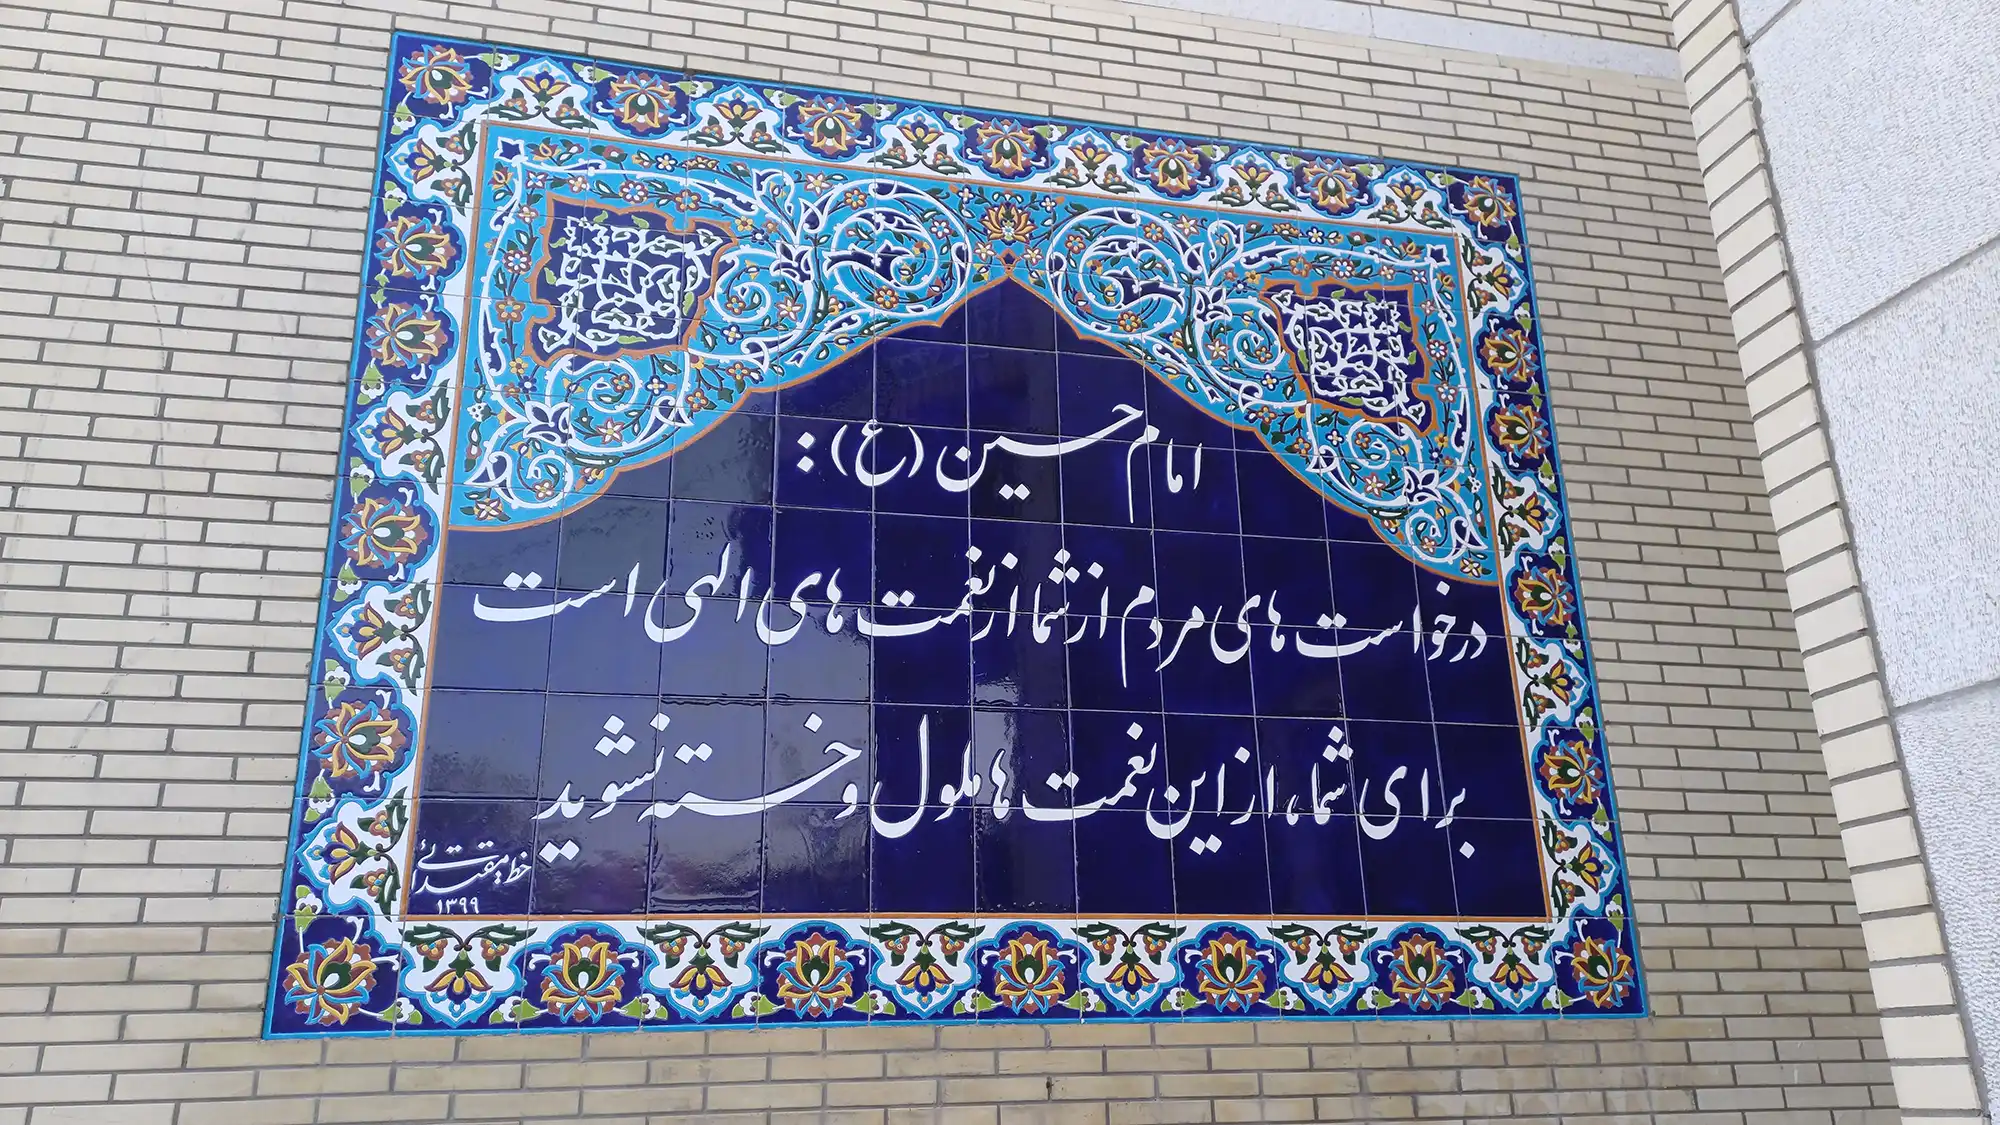 امام حسین (ع) :
درخواست های مردم از شما از نعمت های الهی است
برای شما، از این نعمت ها ملول و خسته نشوید
خط: مقتدائی
۱۳۹۹